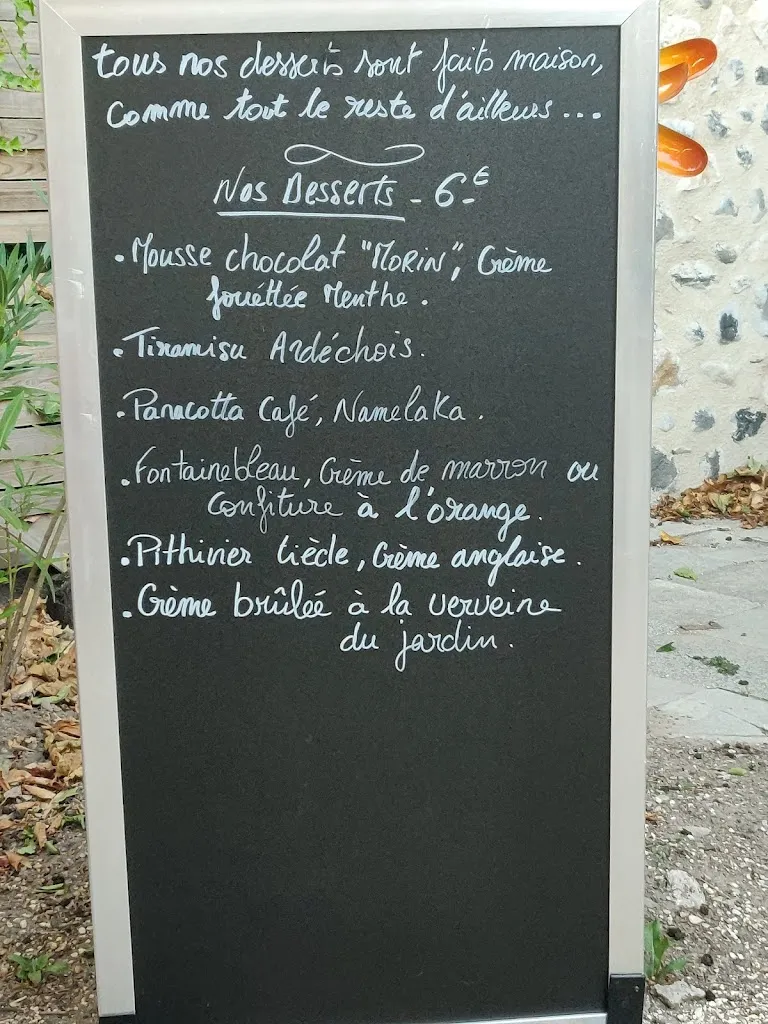 tous nos desserts sont faits maison,
comme tout le reste d'ailleurs ...
Nos Desserts - 6.€
. Mousse chocolat "MORIN", Crème
fouéttée Menthe .
. Tiramisu Ardéchois.
. Panacotta Café, Namelaka .
. Fontainebleau, Crème de marron ou
Confiture à l'orange.
. Pithivier tiède, Crème anglaise .
. Crème brûleé à la verveine
du jardin .